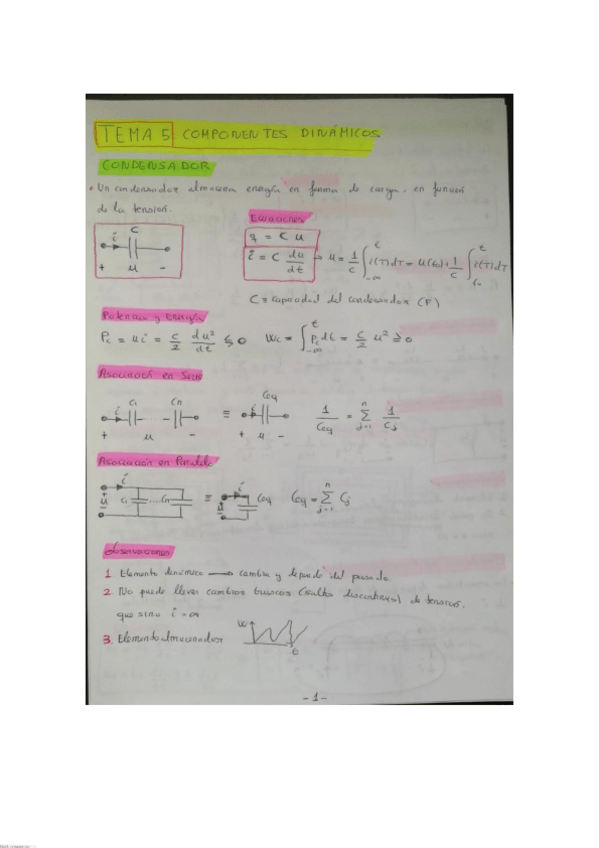 TEMA 5 COMPONENTES DINÁMICOS
CONDENSADOR
• Un condensador almacena energía en forma de carga, en función
de la tensión.
Ecuaciones
C
i
+ u -
q = C u
i = C du/dt → u = 1/C ∫_{-∞}^{t} i(τ)dτ = u(t₀) + 1/C ∫_{t₀}^{t} i(τ)dτ
C ≡ capacidad del condensador (F)
Potencia y Energía
Pc = u i = C/2 du²/dt ≶ 0 Wc = ∫_{-∞}^{t} Pc dt = C/2 u² ≥ 0
Asociación en Serie
i C₁ Cn ≡ i Ceq 1/Ceq = ∑_{j=1}^{n} 1/Cj
+ u - + u -
Asociación en Paralelo
i + u - C₁ .... Cn ≡ i u Ceq Ceq = ∑_{j=1}^{n} Cj
Observaciones
1 Elemento dinámico → cambia y depende del pasado
2 No puede llevar cambios bruscos (saltos discontinuos) de tensión,
que sino i = ∞
3. Elemento almacenador W t
- 1 -